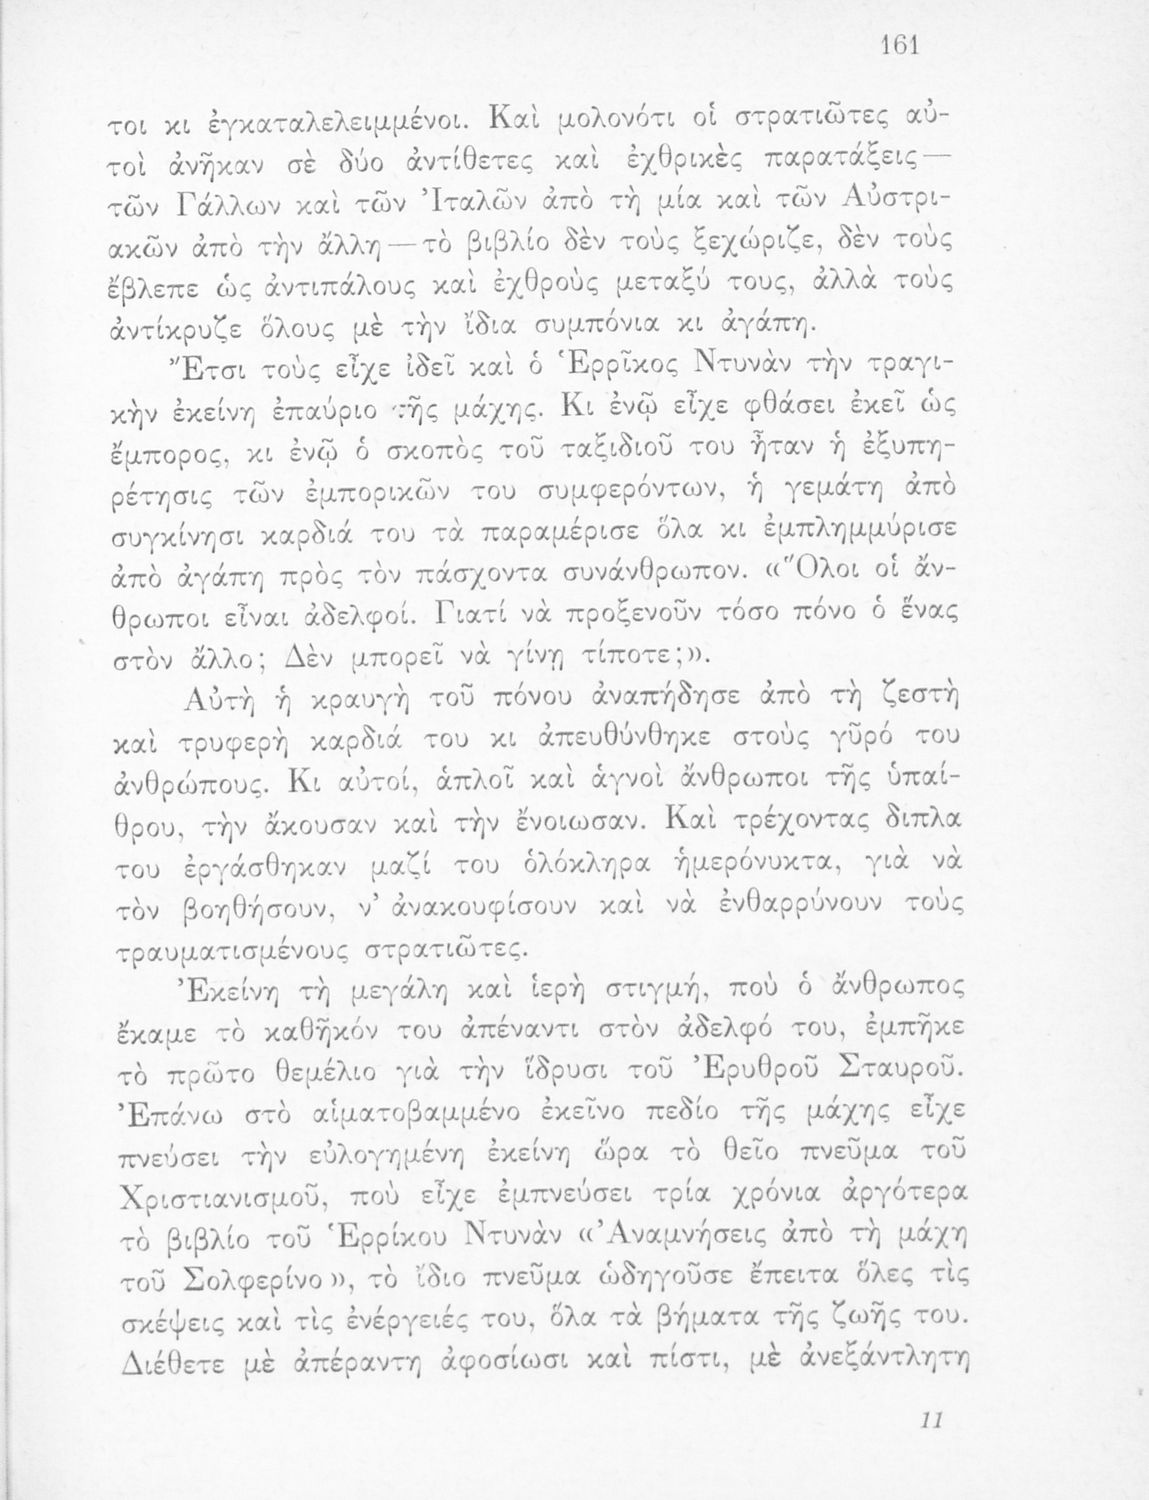 161
τοι κι ἐγκαταλελειμμένοι. Καὶ μολονότι οἱ στρατιῶτες αὐ-
τοὶ ἀνῆκαν σὲ δύο ἀντίθετες καὶ ἐχθρικὲς παρατάξεις —
τῶν Γάλλων καὶ τῶν Ἰταλῶν ἀπὸ τὴ μία καὶ τῶν Αὐστρι-
ακῶν ἀπὸ τὴν ἄλλη — τὸ βιβλίο δὲν τοὺς ξεχώριζε, δὲν τοὺς
ἔβλεπε ὡς ἀντιπάλους καὶ ἐχθροὺς μεταξύ τους, ἀλλὰ τοὺς
ἀντίκρυζε ὅλους μὲ τὴν ἴδια συμπόνια κι ἀγάπη.
Ἔτσι τοὺς εἶχε ἰδεῖ καὶ ὁ Ἑρρῖκος Ντυνὰν τὴν τραγι-
κὴν ἐκείνη ἐπαύριο τῆς μάχης. Κι ἐνῷ εἶχε φθάσει ἐκεῖ ὡς
ἔμπορος, κι ἐνῷ ὁ σκοπὸς τοῦ ταξιδιοῦ του ἦταν ἡ ἐξυπη-
ρέτησις τῶν ἐμπορικῶν του συμφερόντων, ἡ γεμάτη ἀπὸ
συγκίνησι καρδιά του τὰ παραμέρισε ὅλα κι ἐμπλημμύρισε
ἀπὸ ἀγάπη πρὸς τὸν πάσχοντα συνάνθρωπον. «Ὅλοι οἱ ἄν-
θρωποι εἶναι ἀδελφοί. Γιατί νὰ προξενοῦν τόσο πόνο ὁ ἕνας
στὸν ἄλλο; Δὲν μπορεῖ νὰ γίνῃ τίποτε;».
Αὐτὴ ἡ κραυγὴ τοῦ πόνου ἀναπήδησε ἀπὸ τὴ ζεστὴ
καὶ τρυφερὴ καρδιά του κι ἀπευθύνθηκε στοὺς γῦρό του
ἀνθρώπους. Κι αὐτοί, ἁπλοῖ καὶ ἁγνοὶ ἄνθρωποι τῆς ὑπαί-
θρου, τὴν ἄκουσαν καὶ τὴν ἔνοιωσαν. Καὶ τρέχοντας διπλα
του ἐργάσθηκαν μαζί του ὁλόκληρα ἡμερόνυκτα, γιὰ νὰ
τὸν βοηθήσουν, ν’ ἀνακουφίσουν καὶ νὰ ἐνθαρρύνουν τοὺς
τραυματισμένους στρατιῶτες.
Ἐκείνη τὴ μεγάλη καὶ ἱερὴ στιγμή, ποὺ ὁ ἄνθρωπος
ἔκαμε τὸ καθῆκόν του ἀπέναντι στὸν ἀδελφό του, ἐμπῆκε
τὸ πρῶτο θεμέλιο γιὰ τὴν ἵδρυσι τοῦ Ἐρυθροῦ Σταυροῦ.
Ἐπάνω στὸ αἱματοβαμμένο ἐκεῖνο πεδίο τῆς μάχης εἶχε
πνεύσει τὴν εὐλογημένη ἐκείνη ὥρα τὸ θεῖο πνεῦμα τοῦ
Χριστιανισμοῦ, ποὺ εἶχε ἐμπνεύσει τρία χρόνια ἀργότερα
τὸ βιβλίο τοῦ Ἑρρίκου Ντυνὰν «Ἀναμνήσεις ἀπὸ τὴ μάχη
τοῦ Σολφερίνο», τὸ ἴδιο πνεῦμα ὡδηγοῦσε ἔπειτα ὅλες τὶς
σκέψεις καὶ τὶς ἐνέργειές του, ὅλα τὰ βήματα τῆς ζωῆς του.
Διέθετε μὲ ἀπέραντη ἀφοσίωσι καὶ πίστι, μὲ ἀνεξάντλητη
11